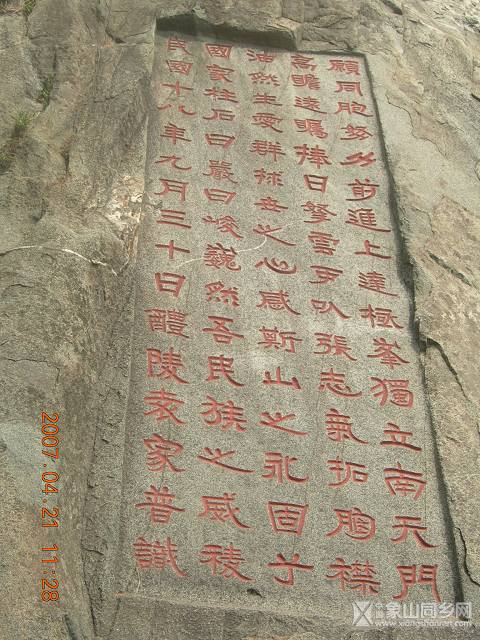 願同胞努力前進上達極峯獨立南天門
高瞻遠矚捧日擎雲可以張志氣拓胸襟
油然生愛群捄世之心感斯山之永固兮
國家柱石曰巖曰峻巍然吾民族之威稜
民國十八年九月三十日醴陵袁家普識
2007.04.21 11:28
象山同乡网
www.xiangshanren.com